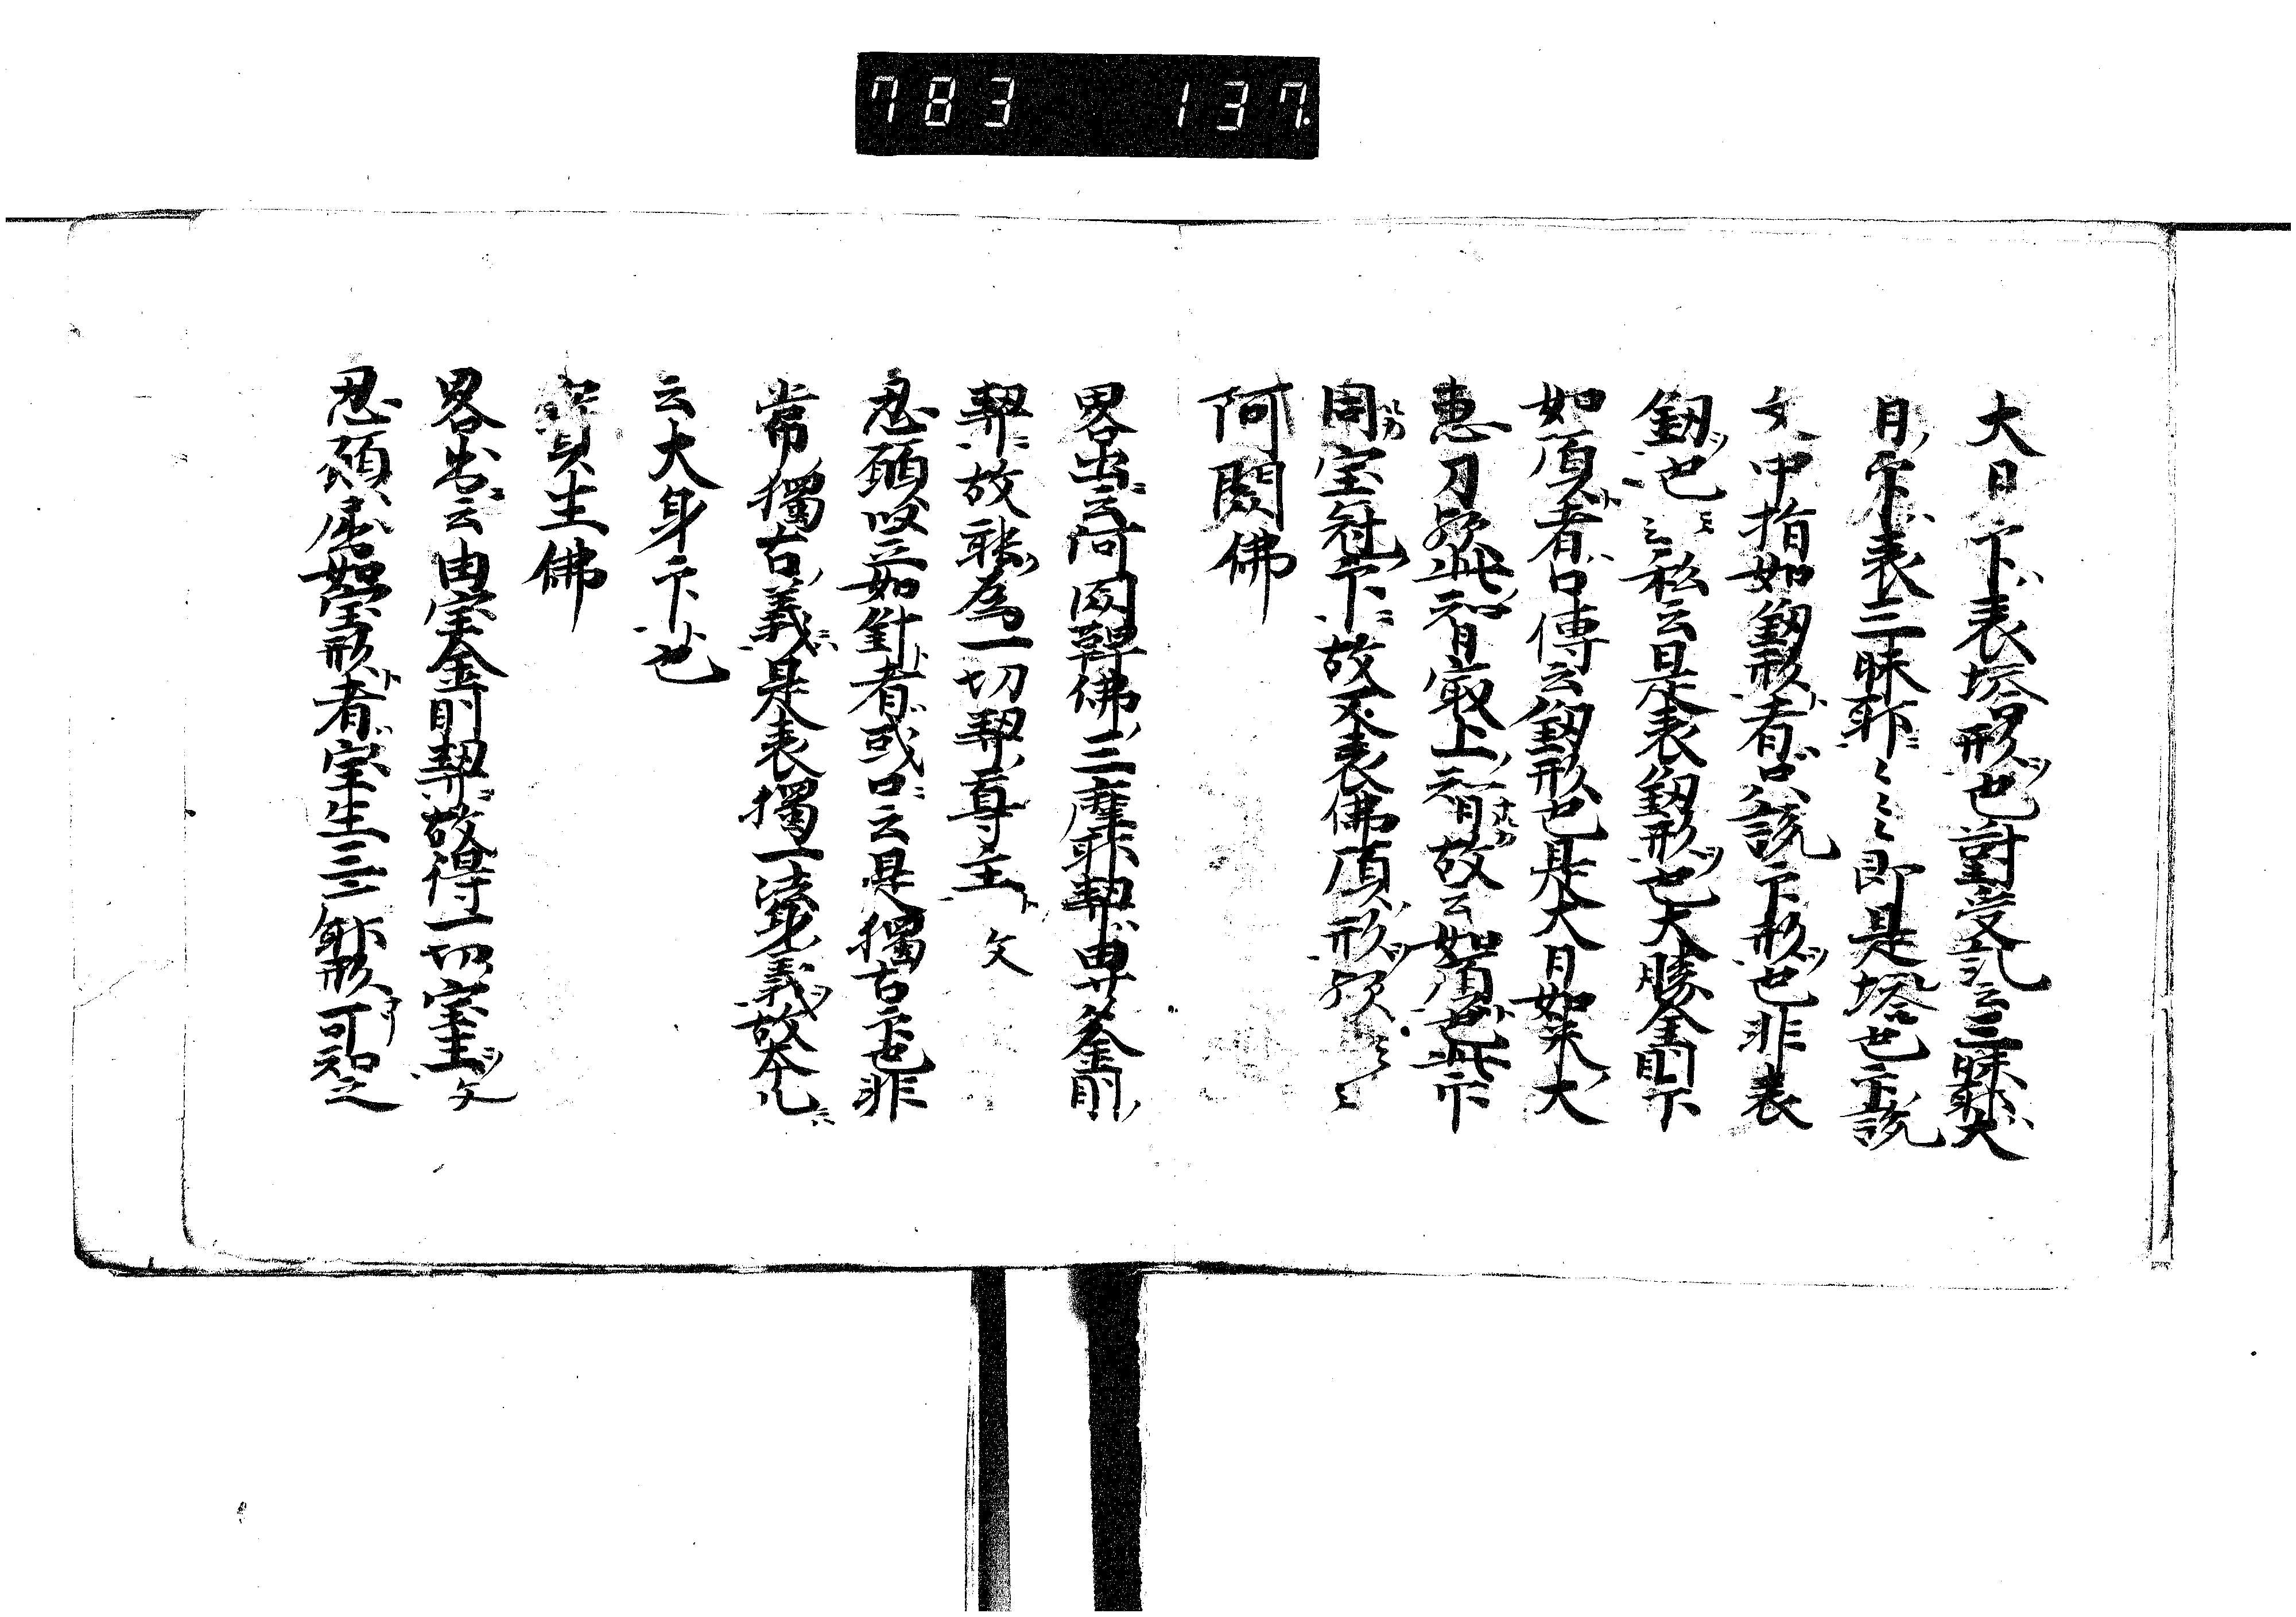 783 137
大日下表塔形也對受記云三昧耶大
日下表三昧耶ミミ即是塔也下説
文中指如釼形者只説下形也非表
釼也ミミ私云是表釼形也大勝金剛下
如頂者口傳云釼形也是大日如来大
惠刀歟此智最上智故云如頂也此下
同宝冠下故又表佛頂形歟ミミ
阿閦佛
畧出云阿閦鞞佛三摩耶契専金剛
契故能為一切契尊主 文
忍願竪如針者或口云是獨古下也非
常獨古義是表獨一法身義故本儿
云大身下也
寳生佛
畧出云由宝金剛契故得一切宝主 文
忍願屈如宝形者宝生三形可知之